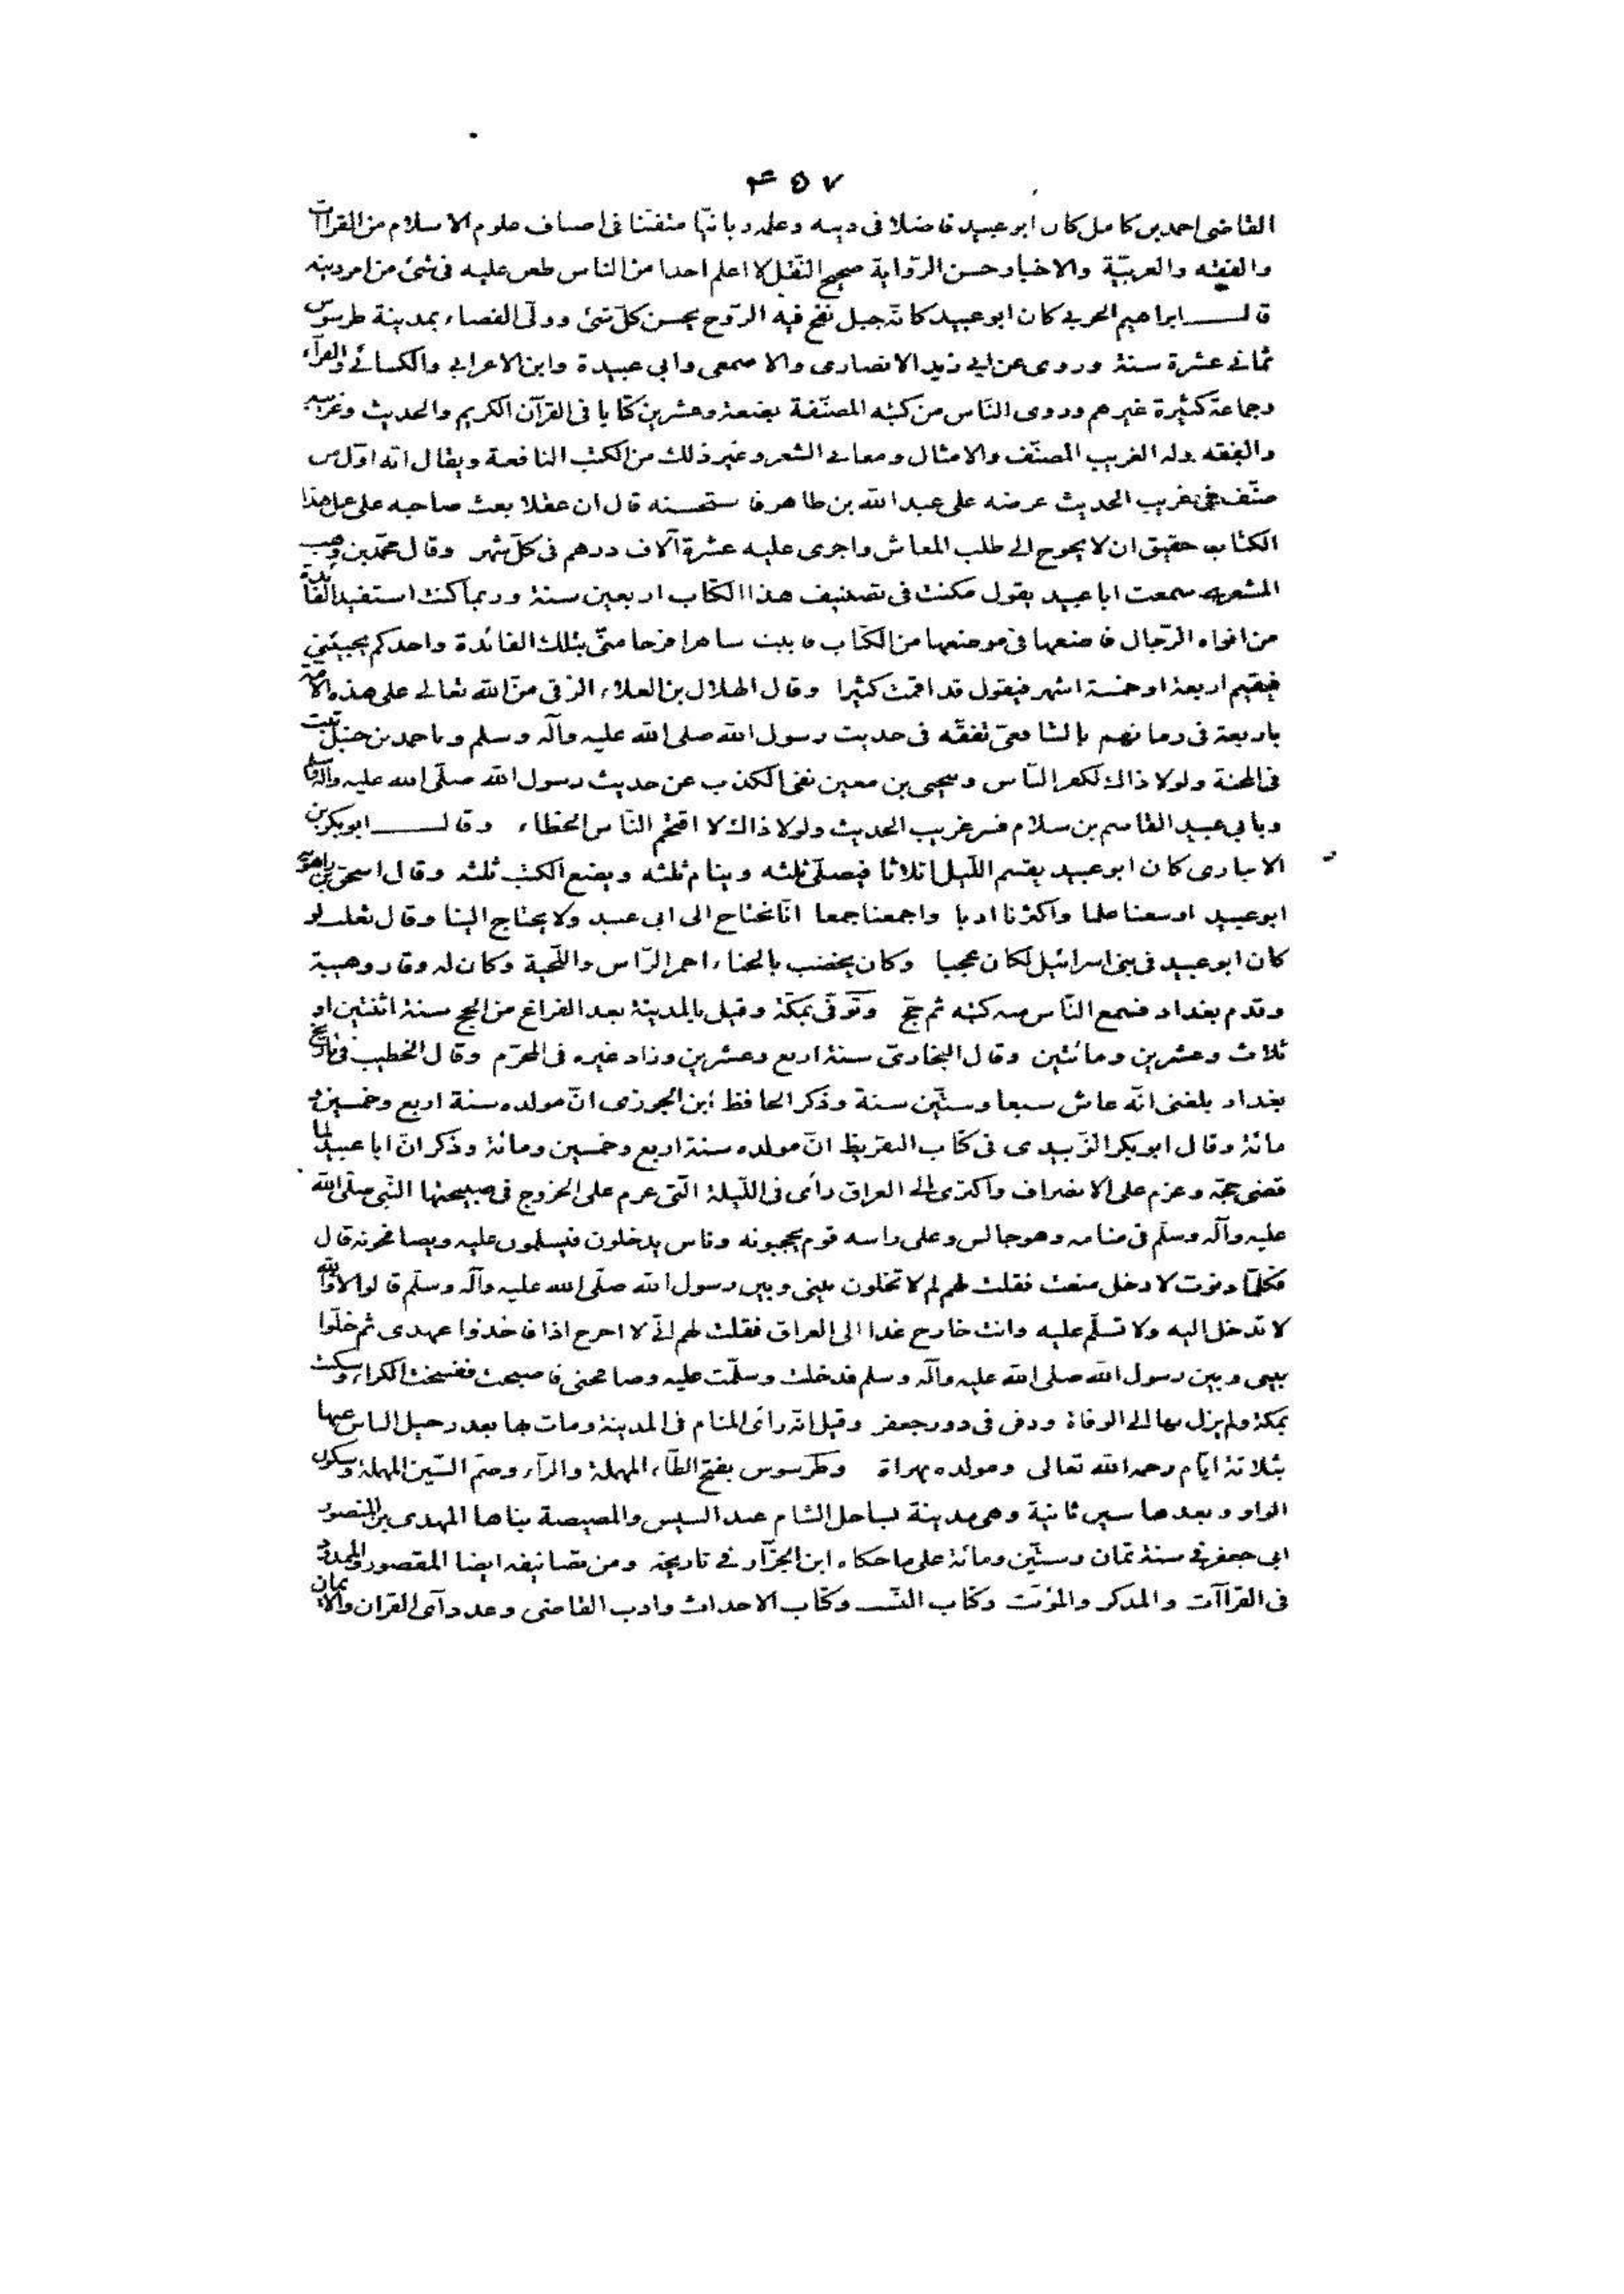 ۴۵۷
القاضى احمد بن كامل كان ابو عبيد فاضلا فى دينه وعلمه ربانيّا متفنّنا فى اصناف علوم الاسلام من القراآت
والفقه والعربيّة والاخبار حسن الرّواية صحيح النّقل لا اعلم احدا من الناس طعن عليه فى شئ من امر دينه
قال ابراهيم الحربى كان ابو عبيد كانّه جبل نفخ فيه الرّوح يحسن كلّ شئ وولّى القضاء بمدينة طرسوس
ثمانى عشرة سنة وروى عن ابى زيد الانصارى والاصمعى وابى عبيدة وابن الاعرابى والكسائى والفرّآء
وجماعة كثيرة غيرهم وروى النّاس من كتبه المصنّفة بضعة وعشرين كتابا فى القرآن الكريم والحديث وغريبه
والفقه وله الغريب المصنّف والامثال ومعانى الشعر وغير ذلك من الكتب النافعة ويقال انّه اوّل من
صنّف فى غريب الحديث عرضه على عبد الله بن طاهر فاستحسنه قال ان عقلا بعث صاحبه على عمل هذا
الكتاب حقيق ان لا يحوج الى طلب المعاش واجرى عليه عشرة آلاف درهم فى كلّ شهر وقال محمّد بن وهب
المشعرى سمعت ابا عبيد يقول مكثت فى تصنيف هذا الكتاب اربعين سنة وربما كنت استفيد الفائدة
من افواه الرّجال فاضعها فى موضعها من الكتاب فابيت ساهرا فرحا منّى بتلك الفائدة واحدكم يجيئنى
فيقيم اربعة او خمسة اشهر فيقول قد اقمت كثيرا وقال الهلال بن العلاء الرقى منّ الله تعالى على هذه الامّة
باربعة فى زمانهم بالشافعىّ تفقّه فى حديث رسول الله صلى الله عليه وآله وسلم وباحمد بن حنبل ثبت
فى المحنة ولولا ذاك لكفر النّاس وبيحيى بن معين نفى الكذب عن حديث رسول الله صلّى الله عليه وآله وسلم
وبابى عبيد القاسم بن سلام فسر غريب الحديث ولولا ذاك لا اقتحم النّاس الخطاء وقال ابو بكر بن
الانبارى كان ابو عبيد يقسم اللّيل اثلاثا فيصلّى ثلثه وينام ثلثه ويضع الكتب ثلثه وقال اسحق بن راهويه
ابو عبيد اوسعنا علما واكثرنا ادبا واجمعنا جمعا انّا نحتاج الى ابى عبيد ولا يحتاج الينا وقال ثعلب لو
كان ابو عبيد فى بنى اسرائيل لكان عجبا وكان يخضب بالحناء احمر الرّاس واللّحية وكان له وقار وهيبة
وقدم بغداد فسمع النّاس منه كتبه ثم حجّ وتوفّى بمكّة وقيل بالمدينة بعد الفراغ من الحج سنة اثنتين او
ثلاث وعشرين ومائتين وقال البخارىّ سنة اربع وعشرين وزاد غيره فى المحرّم وقال الخطيب فى تاريخ
بغداد بلغنى انّه عاش سبعا وستّين سنة وذكر الحافظ ابن الجوزى انّ مولده سنة اربع وخمسين و
مائة وقال ابو بكر الزّبيدى فى كتاب التقريظ انّ مولده سنة اربع وخمسين ومائة وذكر انّ ابا عبيد لما
قضى حجّه وعزم على الانصراف واكترى الى العراق رأى فى اللّيلة الّتى عزم على الخروج فى صبيحتها النّبى صلى الله
عليه وآله وسلّم فى منامه وهو جالس وعلى راسه قوم يحجبونه وناس يدخلون فيسلمون عليه ويصافحونه قال
فكلّما دنوت لا دخل منعت فقلت لهم لم لا تخلون بينى وبين رسول الله صلّى الله عليه وآله وسلّم قالوا لا والله
لا تدخل اليه ولا تسلّم عليه وانت خارج غدا الى العراق فقلت لهم انّى لا اخرج اذا فاخذوا عهدى ثم خلّوا
بينى وبين رسول الله صلى الله عليه وآله وسلم فدخلت وسلّمت عليه وصافحنى فاصبحت ففسخت الكراء وسكنت
بمكة ولم يزل بها الى الوفاة ودفن فى دور جعفر وقيل انّه رأى المنام فى المدينة ومات بها بعد رحيل الناس عنها
بثلاثة ايّام رحمه الله تعالى ومولده بهراة وطرسوس بفتح الطّآء المهملة والرآء وضمّ السّين المهملة وسكون
الواو وبعدها سين ثانية وهى مدينة بساحل الشام عند السيس والمصيصة بناها المهدى بن المنصور
ابى جعفر فى سنة ثمان وستّين ومائة على ما حكاه ابن الجزّار فى تاريخه ومن تصانيفه ايضا المقصور والممدود
فى القرّاآت والمذكر والمؤنّث وكتاب النسب وكتاب الاحداث وادب القاضى وعدد آى القرآن والايمان